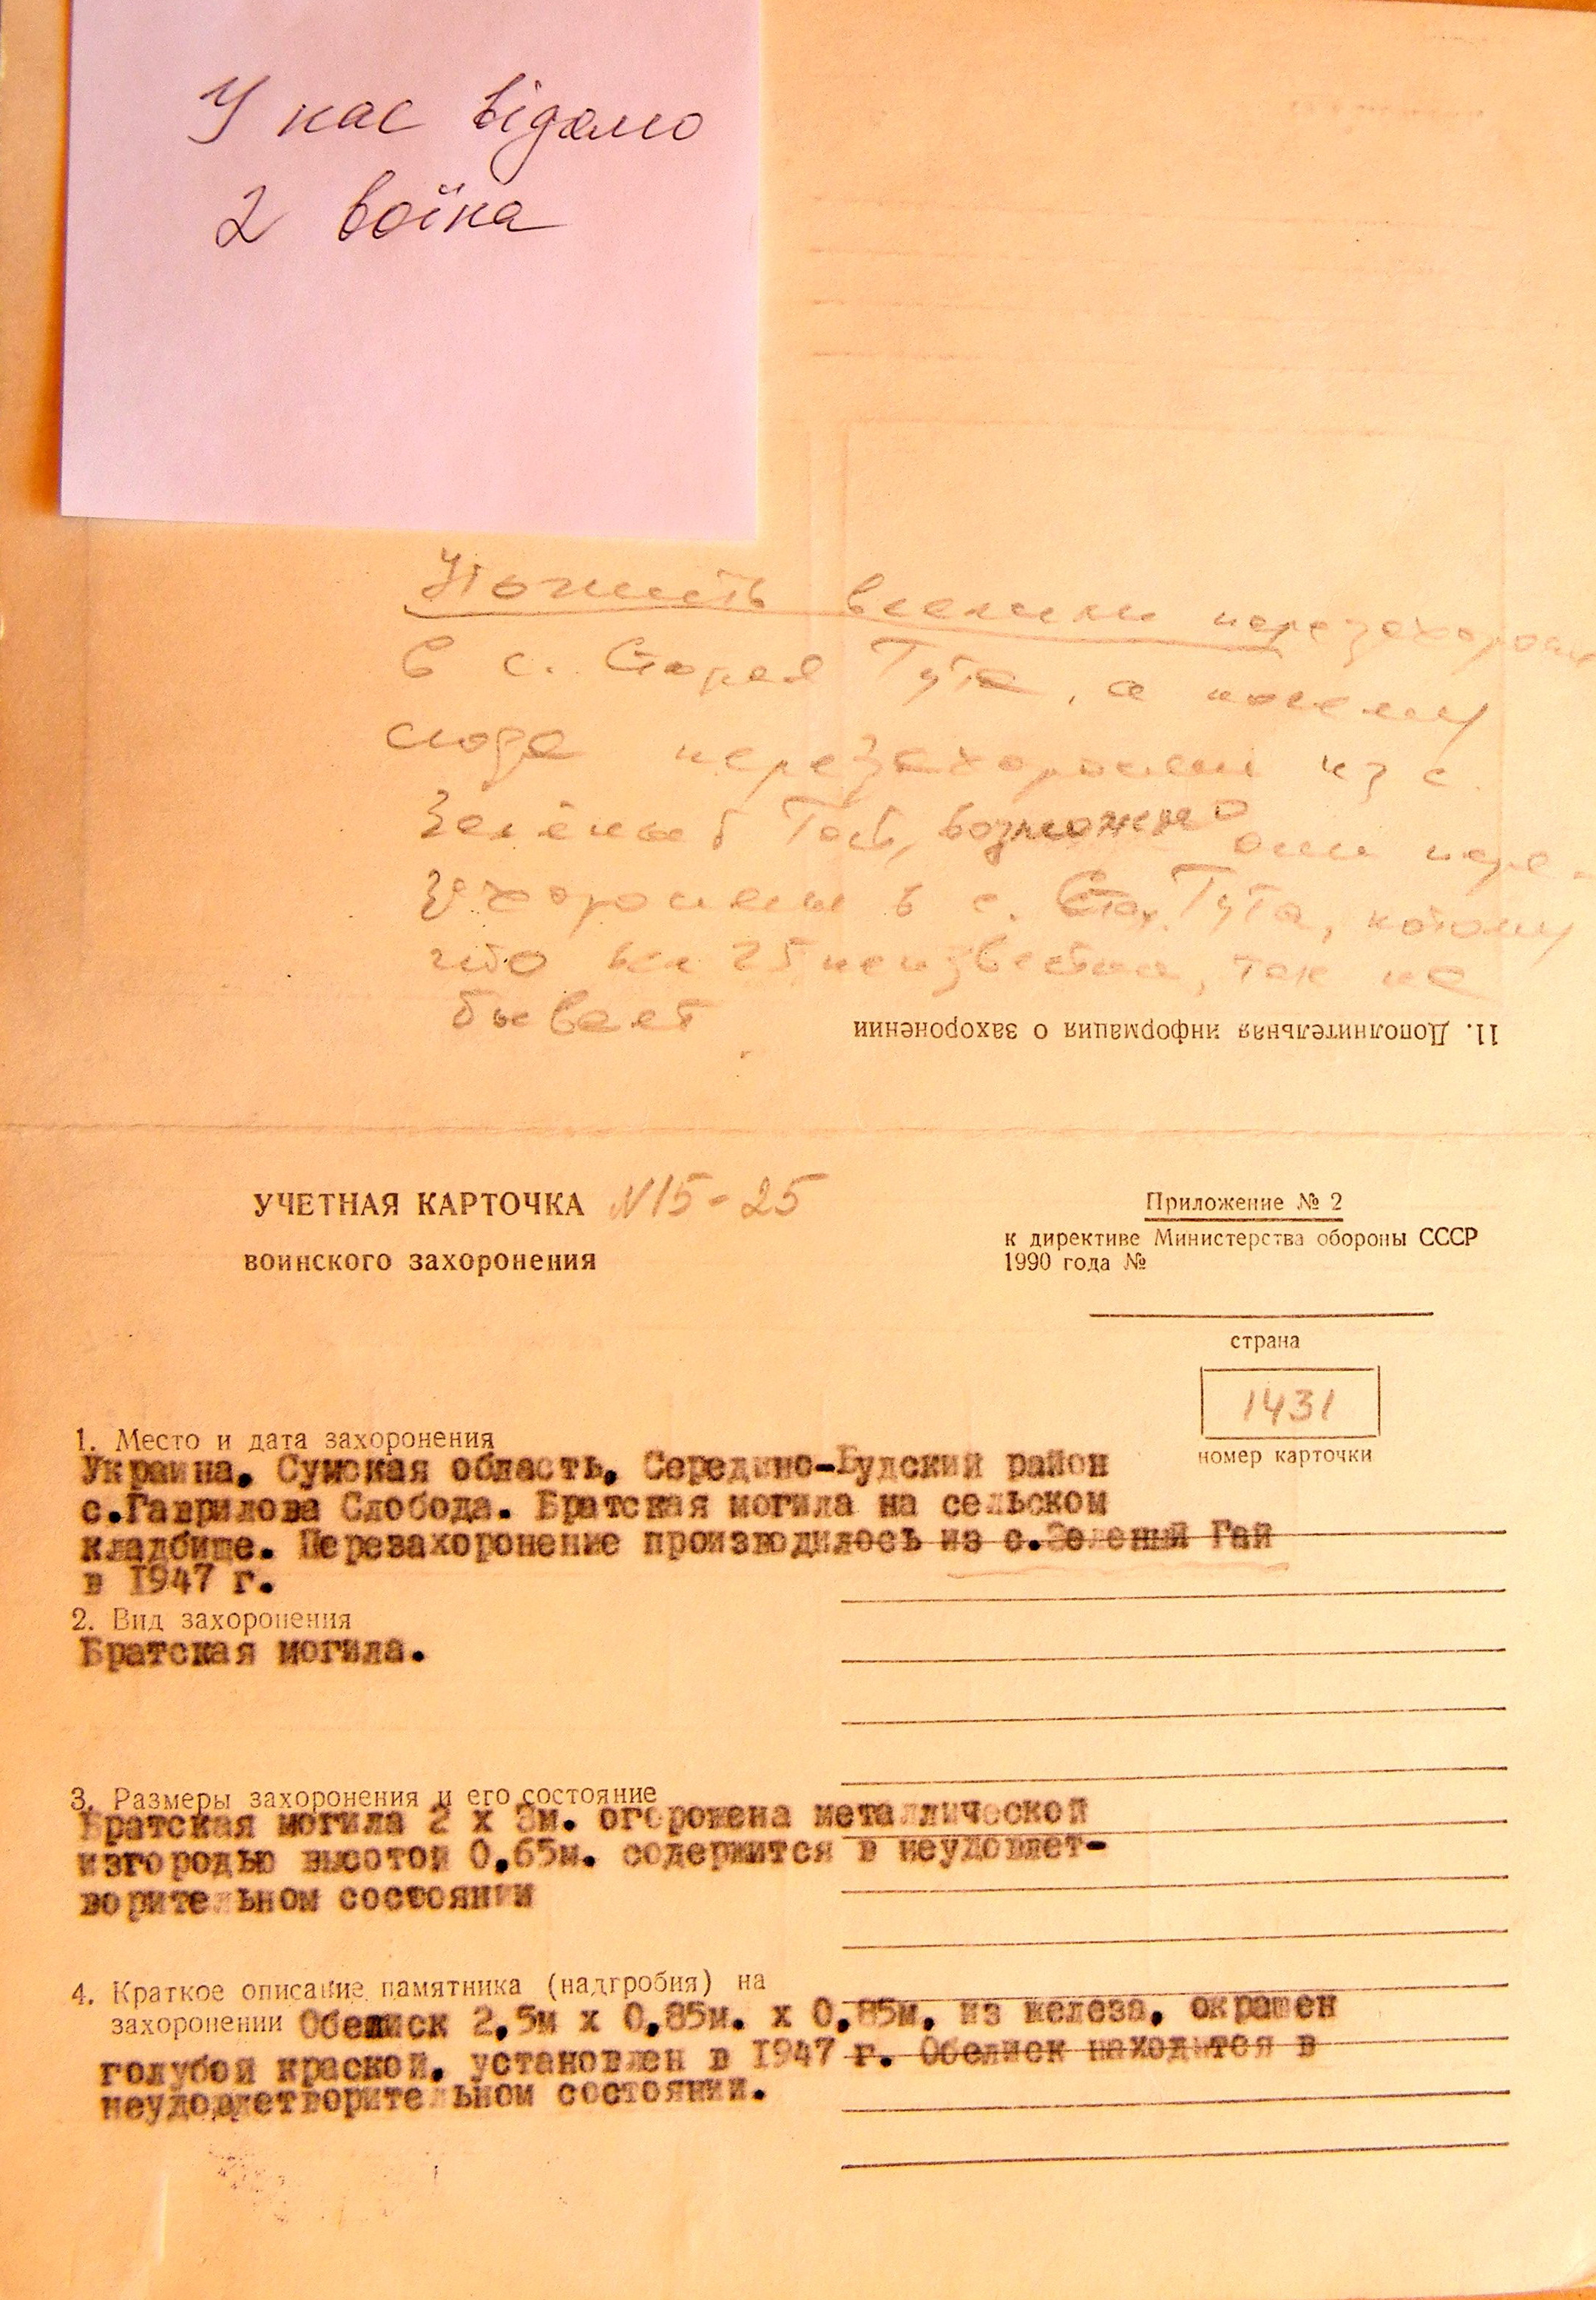 У нас відомо
2 воїна
перезахорони
в с. Старая Гута, а почему
сюда перезахоронили из с.
Зелёный Гай, возможно они пере-
захоронены в с. Стар. Гута, потому
что все 25 неизвестны, так не
бывает
11. Дополнительная информация о захоронении
УЧЕТНАЯ КАРТОЧКА N15-25
воинского захоронения
Приложение № 2
к директиве Министерства обороны СССР
1990 года №
страна
1431
номер карточки
1. Место и дата захоронения
Украина. Сумская область. Середино-Будский район
с.Гаврилова Слобода. Братская могила на сельском
кладбище. Перезахоронение производилось из с.Зеленый Гай
в 1947 г.
2. Вид захоронения
Братская могила.
3. Размеры захоронения и его состояние
Братская могила 2 х 3м. огорожена металлической
изгородью высотой 0,65м. содержится в неудовлет-
ворительном состоянии
4. Краткое описание памятника (надгробия) на
захоронении Обелиск 2,5м х 0,85м. х 0,85м. из железа, окрашен
голубой краской, установлен в 1947 г. Обелиск находится в
неудовлетворительном состоянии.